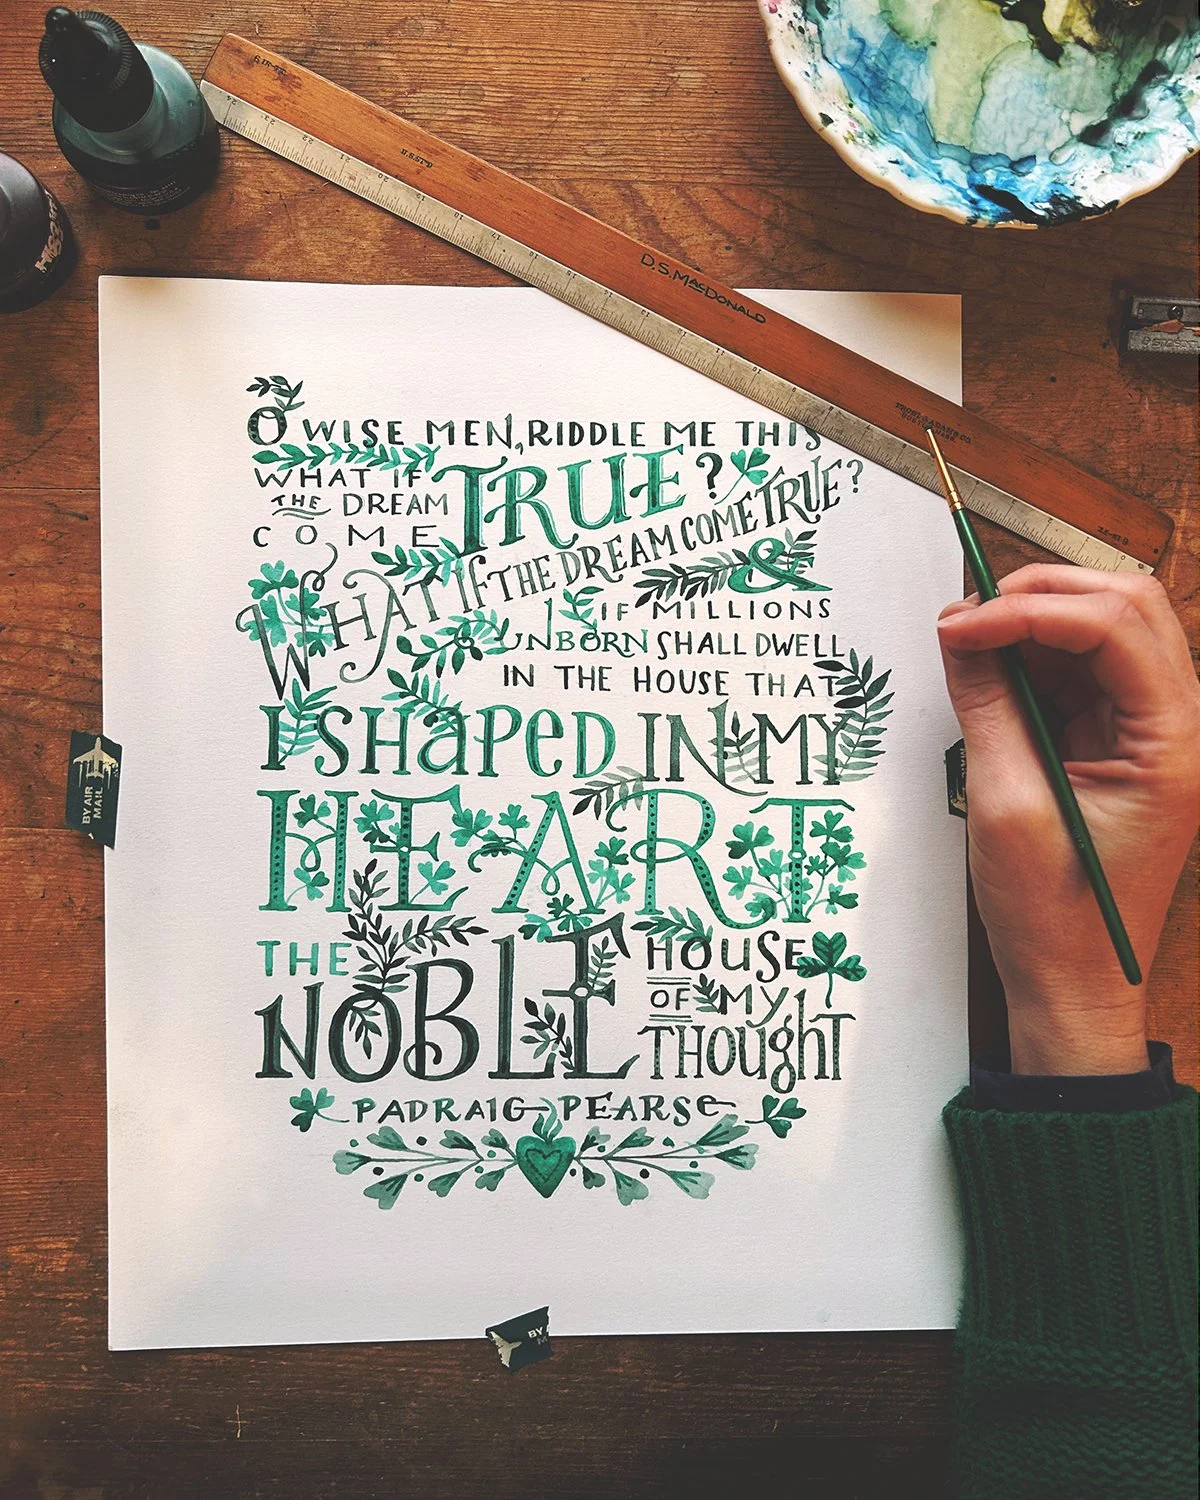 D.S. MACDONALD
O WISE MEN, RIDDLE ME THIS
WHAT IF
THE DREAM
COME
TRUE?
WHAT IF THE DREAM COME TRUE?
&
IF MILLIONS
UNBORN SHALL DWELL
IN THE HOUSE THAT
I SHAPED IN MY
HEART
THE
NOBLE
HOUSE
OF MY
THOUGHT
PADRAIG PEARSE
BY AIR
MAIL
BY A
M